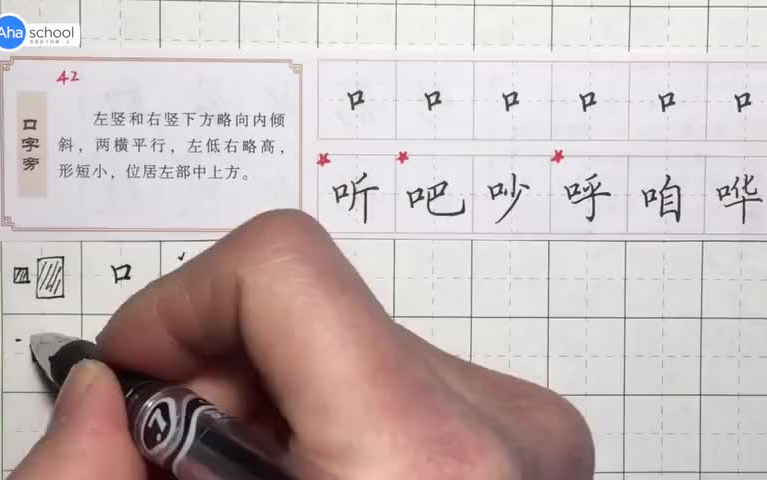 Aha school
42
口字旁
左竖和右竖下方略向内倾
斜，两横平行，左低右略高，
形短小，位居左部中上方。
口 口 口 口 口 口
听 吧 吵 呼 咱 哗
口